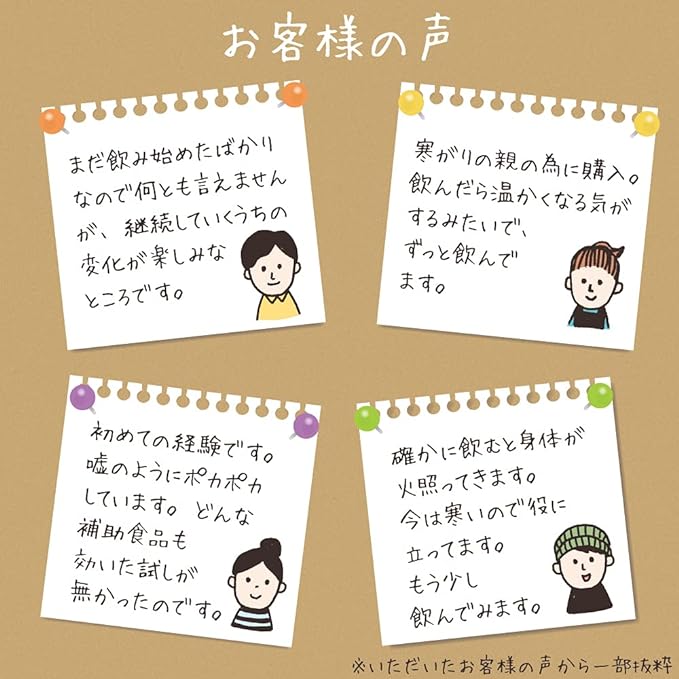 お客様の声
まだ飲み始めたばかり
なので何とも言えません
が、継続していくうちの
変化が楽しみな
ところです。
寒がりの親の為に購入。
飲んだら温かくなる気が
するみたいで、
ずっと飲んで
ます。
初めての経験です。
嘘のようにポカポカ
しています。どんな
補助食品も
効いた試しが
無かったのです。
確かに飲むと身体が
火照ってきます。
今は寒いので役に
立ってます。
もう少し
飲んでみます。
※いただいたお客様の声から一部抜粋